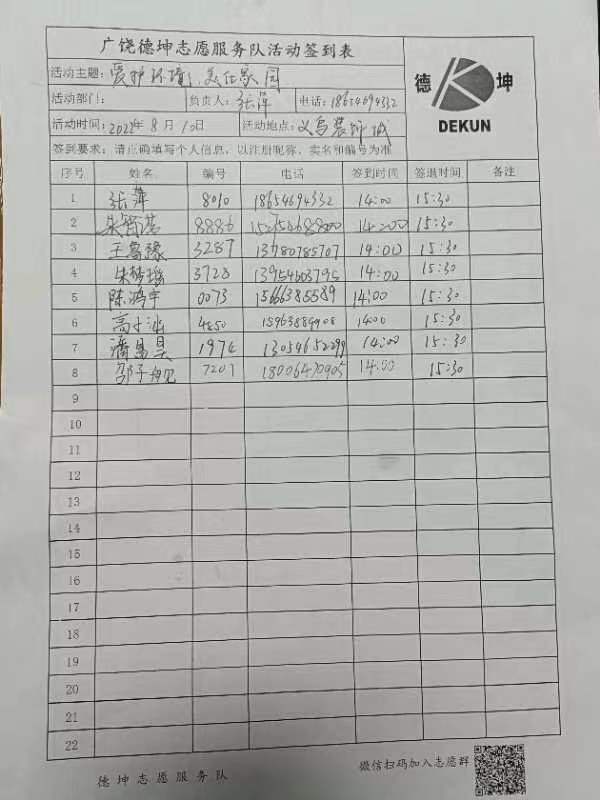 广饶德坤志愿服务队活动签到表
活动主题：爱护环境，美化家园
活动部门： 负责人：张萍 电话：18654694332
活动时间：2022年8月10日 活动地点：义乌装饰城
签到要求：请正确填写个人信息，以注册昵称、实名和编号为准
德 坤
DEKUN
序号 姓名 编号 电话 签到时间 签退时间 备注
1 张萍 8010 18654694332 14:00 15:30
2 8886 15:30
3 王 3287 13780785707 14:00 15:30
4 朱 3728 13954603795 14:00 15:30
5 陈鸿宇 0073 14:00 15:30
6 高 4850 1400 15:30
7 14:00 15:30
8 邹子 7207 18006470905 14:00 15:30
9
10
11
12
13
14
15
16
17
18
19
20
21
22
德坤志愿服务队
微信扫码加入志愿群